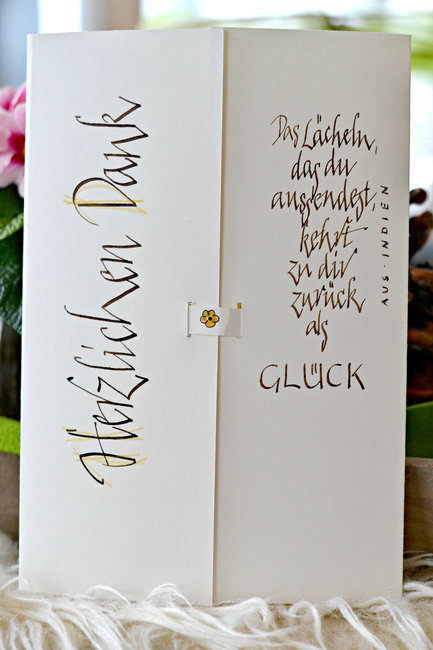 Herzlichen Dank
Das Lächeln,
das du
aussendest,
kehrt
zu dir
zurück
als
GLÜCK
AUS·INDIEN